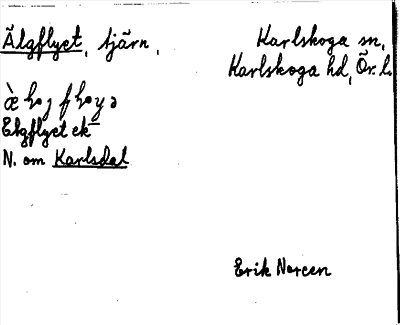 Älgflyet, tjärn,
Karlskoga sn,
Karlskoga hd, Ör. l.
Elgflyet ek
N. om Karlsdal
Erik Noreen